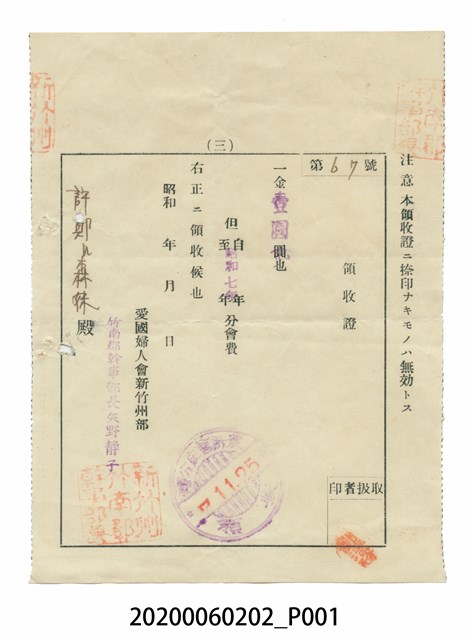 (三)
注意 本領收證ニ捺印ナキモノハ無効トス
第67號
領收證
一金壹圓也
但自昭和七年
至 年 分會費
右正ニ領收候也
昭和 年 月 日
愛國婦人會新竹州部
竹南郡幹事部長矢野靜子
許鄭氏森妹殿
取扱者印
7.11.25
新竹州
竹南郡
幹事部長
20200060202_P001